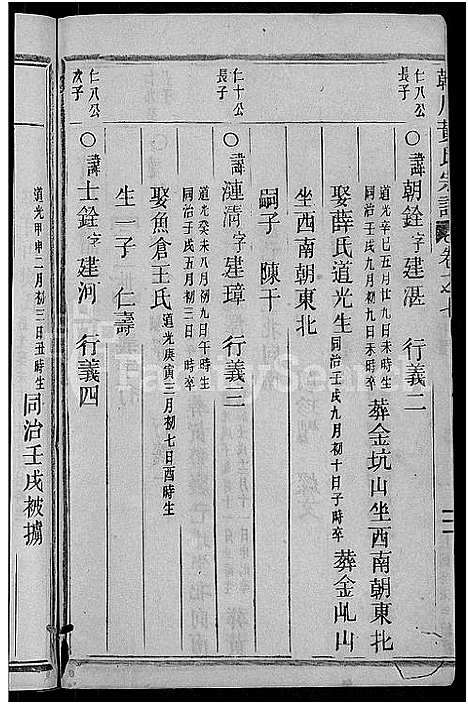 韓川黃氏宗譜 卷之七
仁八公
長子
○諱朝銓字建湛 行義二
道光辛巳五月廿九日未時生
同治壬戌九月初九日未時卒
葬金坑山坐西南朝東北
娶薛氏道光生
同治壬戌九月初十日子時卒
葬金乢山
坐西南朝東北
嗣子 陳干
仁十公
長子
○諱漣清字建璋 行義三
道光癸未八月初九日午時生
同治壬戌五月初三日 時卒
娶魚倉王氏
道光庚寅三月初七日酉時生
生一子 仁壽
仁八公
次子
○諱士銓字建河 行義四
道光甲申二月初三日丑時生
同治壬戌被擄
FamilySearch